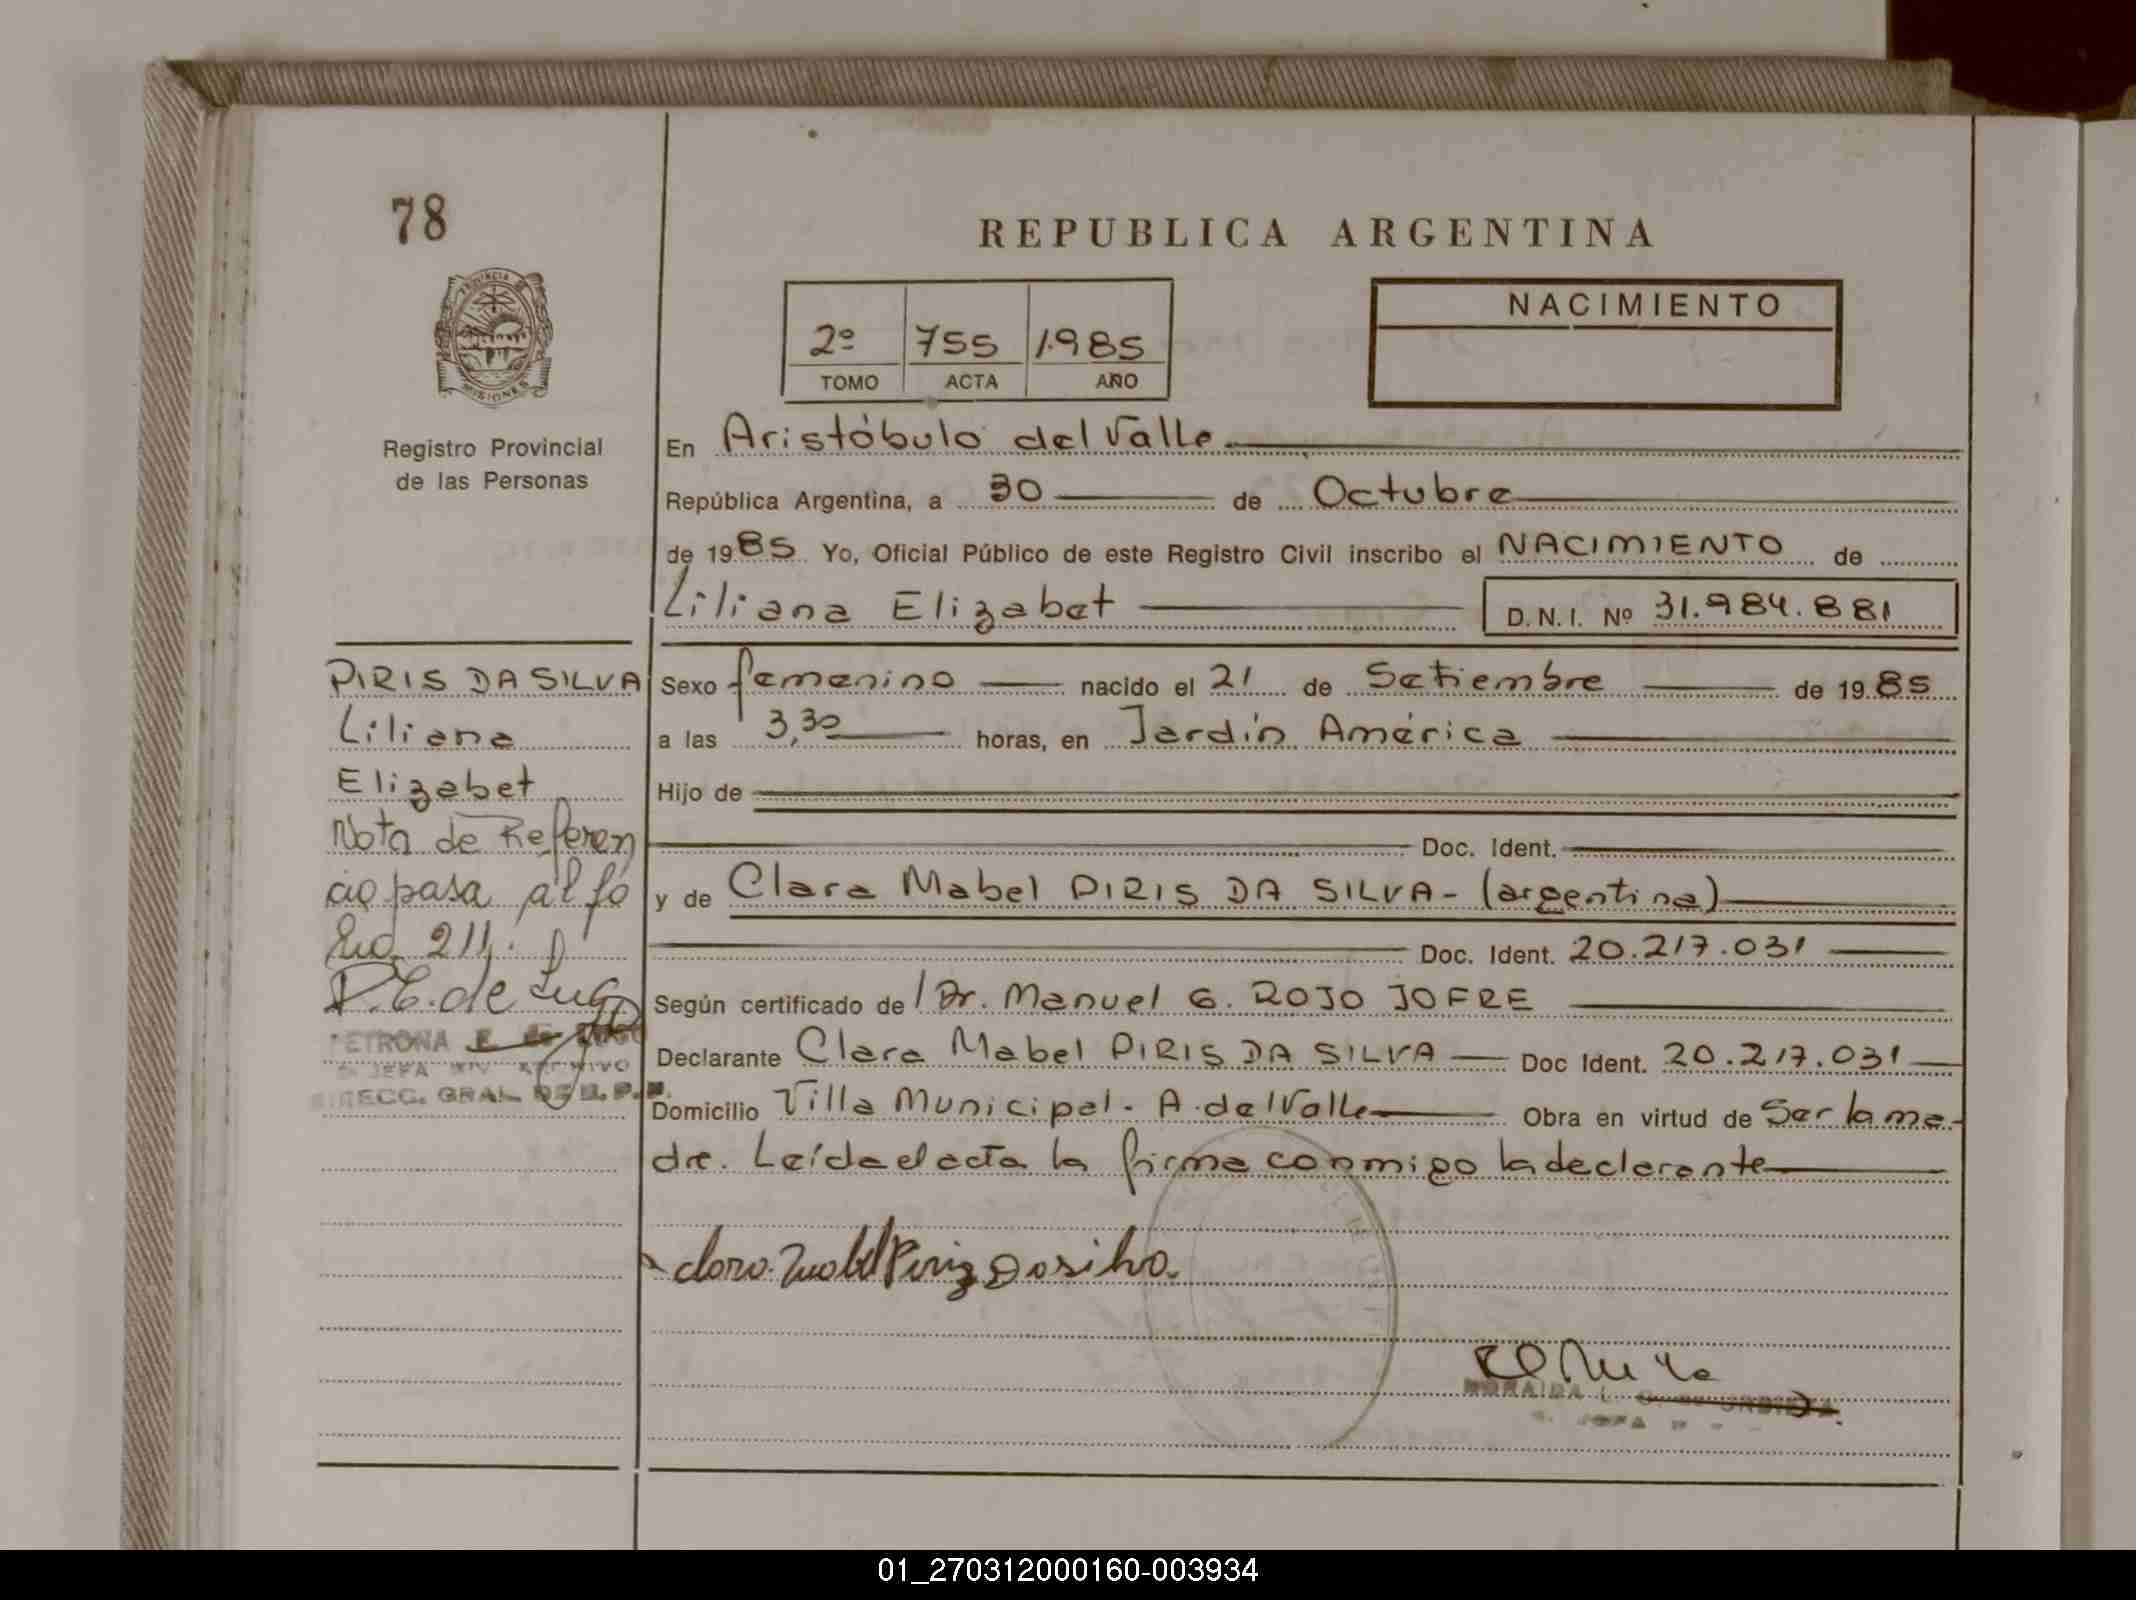 78
REPUBLICA ARGENTINA
PROVINCIA
MISIONES
2º 755 1.985
TOMO ACTA AÑO
NACIMIENTO
Registro Provincial
de las Personas
En Aristóbulo del Valle
República Argentina, a 30 de Octubre
de 1985 Yo, Oficial Público de este Registro Civil inscribo el NACIMIENTO de
Liliana Elizabet D.N.I. Nº 31.984.881
PIRIS DA SILVA
Liliana
Elizabet
Nota de Referen
cia pasa al fo
lio 211.
P.E. de Lugo
PETRONA E. de
JEFA DIV. ARCHIVO
DIRECC. GRAL. DE R.P.P.
Sexo femenino nacido el 21 de Setiembre de 1985
a las 3,30 horas, en Jardín América
Hijo de
Doc. Ident.
y de Clara Mabel PIRIS DA SILVA - (argentina)
Doc. Ident. 20.217.031
Según certificado de Dr. Manuel G. ROJO JOFRE
Declarante Clara Mabel PIRIS DA SILVA Doc Ident. 20.217.031
Domicilio Villa Municipal - A. del Valle Obra en virtud de Ser la ma-
dre. Leída el acta la firma conmigo la declarante
Clara Mabel Piriz Da silva.
JEFA
01_270312000160-003934